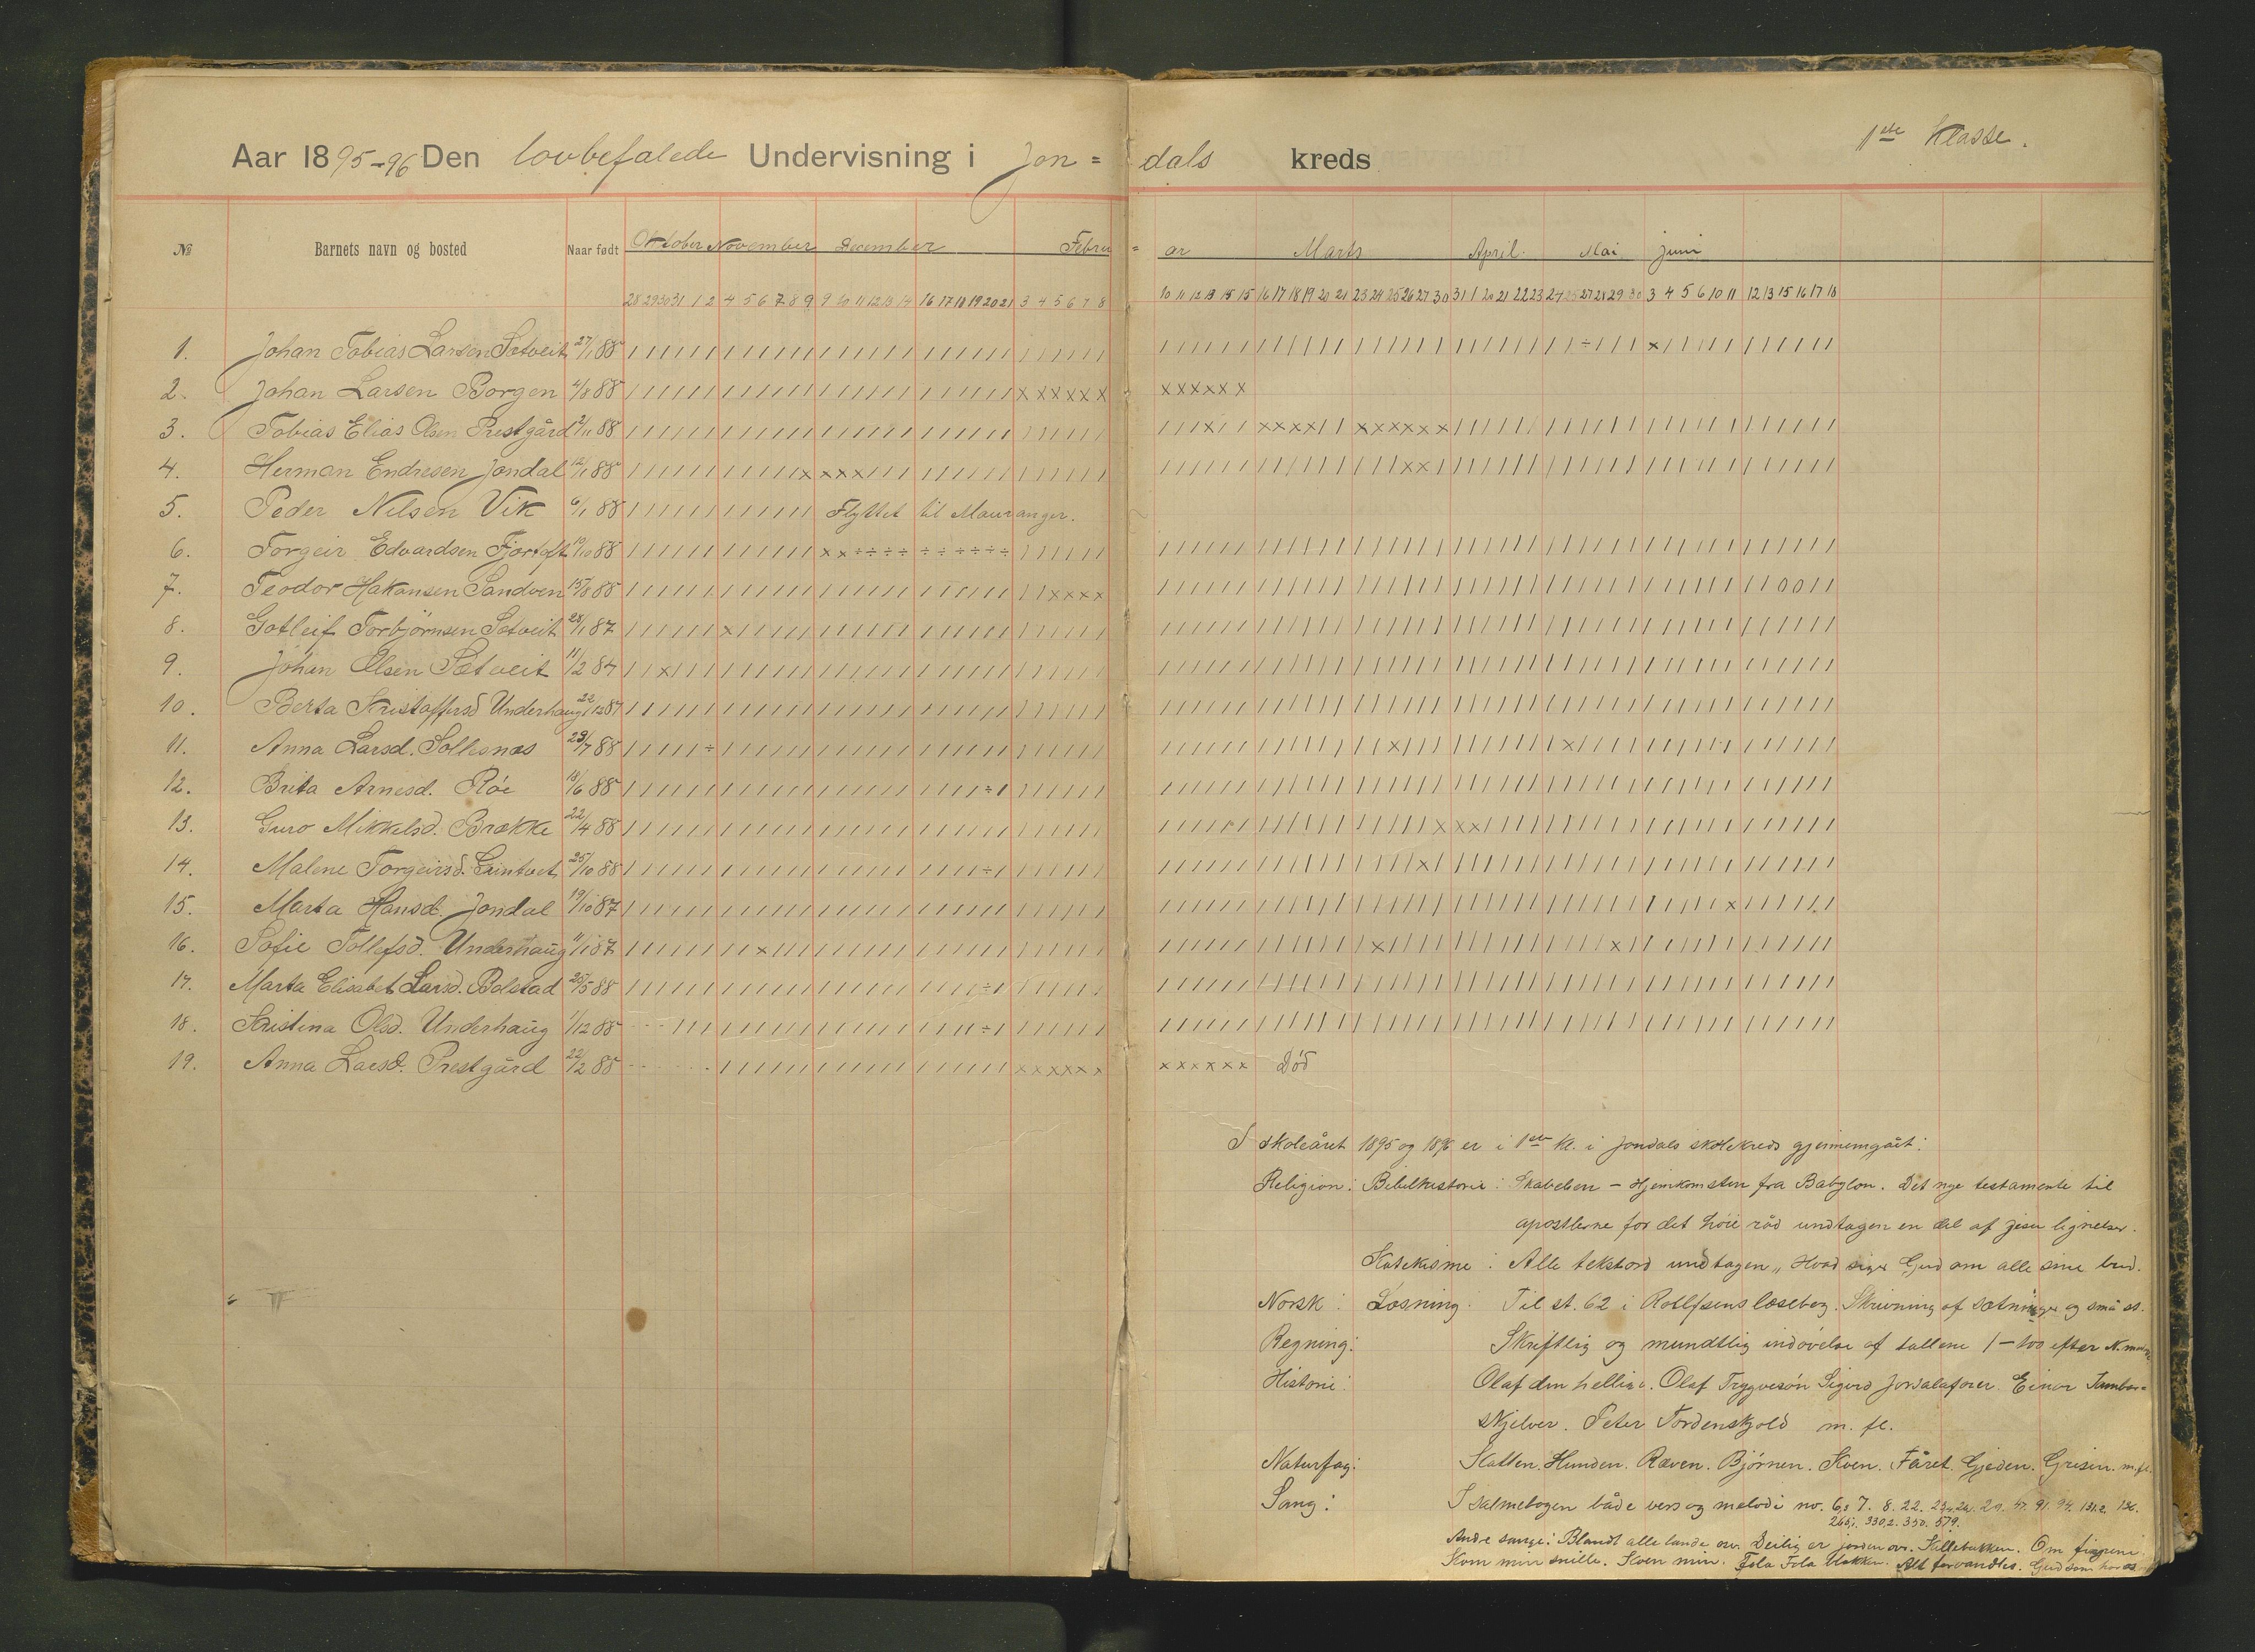 1ste Klasse.
Aar 1895-96 Den lovbefalede Undervisning i Jon = dals kreds
№ Barnets navn og bosted Naar født Oktober November December Febru = ar Marts April Mai Juni
28 29 30 31 1 2 4 5 6 7 8 9 9 10 11 12 13 14 16 17 18 19 20 21 3 4 5 6 7 8 10 11 12 13 14 15 16 17 18 19 20 21 23 24 25 26 27 30 31 1 20 21 22 23 24 25 27 28 29 30 3 4 5 6 10 11 12 13 15 16 17 18
1. Johan Tobias Larsen Sætveit 27/1 88
2. Johan Larsen Borgen 4/8 88
3. Tobias Elias Olsen Prestgård 2/11 88
4. Herman Endresen Jondal 12/1 88
5. Peder Nilsen Vik 6/1 88 Flyttet til Mauranger.
6. Torgeir Edvardsen Fjortoft 19/10 88
7. Teodor Hakonsen Sandven 15/8 88
8. Gotleif Torbjørnsen Sætveit 28/1 87
9. Johan Olsen Sætveit 11/2 87
10. Berta Kristoffersd Underhaug 22/12 87
11. Anna Larsd. Solesnæs 23/7 88
12. Brita Arnesd. Róe 18/6 88
13. Guro Mikkelsd. Brække 22/4 88
14. Malene Torgeirsd. 25/10 88
15. Marta Hansd. Jondal 19/10 87
16. Sofie Tollefsd. Underhaug 11/1 87
17. Marta Elisabet Larsd. Bolstad 25/5 88
18. Kristina Olsd. Underhaug 1/12 88
19. Anna Larsd. Prestgård 22/2 88 Død
I skoleåret 1895 og 1896 er i 1ste kl. i Jondals skolekreds gjennemgået:
Religion: Bibelhistorie: Skabelsen – Hjemkomsten fra Babylon. Det nye testamente til
apostlerne for det høie råd undtagen en del af Jesu lignelser.
Katekisme: Alle tekstord undtagen „Hvad siger Gud om alle sine bud.
Norsk: Læsning: Til st. 62 i Rolfsens læsebog. Skrivning af sætninger og små st.
Regning: Skriftlig og mundtlig indøvelse af tallene 1–100 efter
Historie: Olaf den hellige. Olaf Trygvesøn Sigurd Jorsalafarer. Einar Tambar=
skjelver. Peter Tordenskjold m. fl.
Naturfag: Katten. Hunden. Ræven. Bjørnen. Koen. Fåret. Gjeden. Grisen. m.fl.
Sang: I salmebogen både vers og melodi no. 6,8 7. 8. 22. 91. 94.
265, 330,2. 350. 579.
Andre sange: Blandt alle lande osv. Deilig er jorden osv. Killebukken. Om
Kom min snille. Koen min. Fola Fola Blakken. Alt forvandles. Gud som